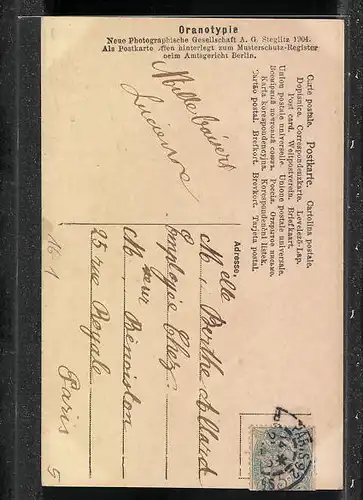 Oranotypie
Neue Photographische Gesellschaft A. G. Steglitz 1904.
Als Postkarte offen hinterlegt zum Musterschutz-Register
beim Amtsgericht Berlin.
Carte postale. Postkarte. Cartolina postale.
Dopisnice. Correspondenzkarte. Levelező-Lap.
Post card. Weltpostverein. Briefkaart.
Union postale universelle. Unione postale universale.
Всемірный почтовый союзъ. Россія. Открытое письмо.
Karta korespondencyjna. Korespondenční lístek.
Tarjeta postal. Brefkort. Brevkort. Tarjeta postal.
Mille baisers
Lucienne
Adresse.
Melle Berthe Allard
Employée chez
M Benoiston
25 rue Royale
Paris